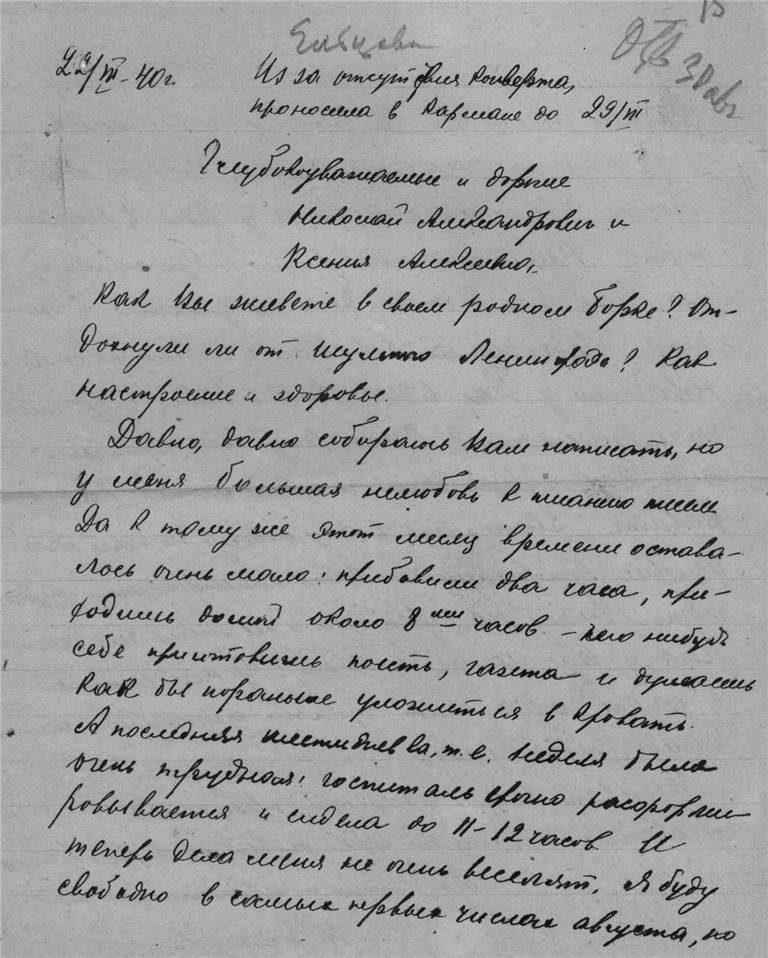 Елацова
22/VII-40г.
Из за отсутствия конверта,
проносила в кармане до 29/VII
Глубокоуважаемые и доргие
Николай Александрович и
Ксенья Алексевна,
Как вы живете в своем родном борке? От-
дохнули ли от шумного Ленинграда? Как
настроение и здоровье.
Давно, давно собираюсь вам написать, но
у меня большая нелюбовь к писанию писем
Да к тому же этот месяц времени остава-
лось очень мало: прибавили два часа, при-
ходишь домой около 8ми часов – чего нибудь
себе приготовишь поесть, газета и думаешь
как бы пораньше уложиться в кровать.
А последняя шестидневка, т.е. неделя была
очень трудная: госпиталь срочно расформи-
ровывается и сидела до 11-12 часов. И
теперь дела меня не очень веселят. Я буду
свободно в самых первых числах августа, но